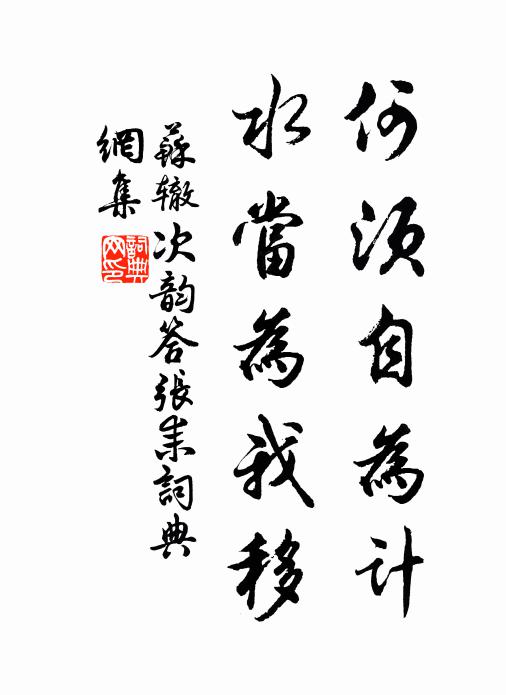 何須自為計
水當為我移
蘇轍次韵答張耒詞典
網集
詞典
网印